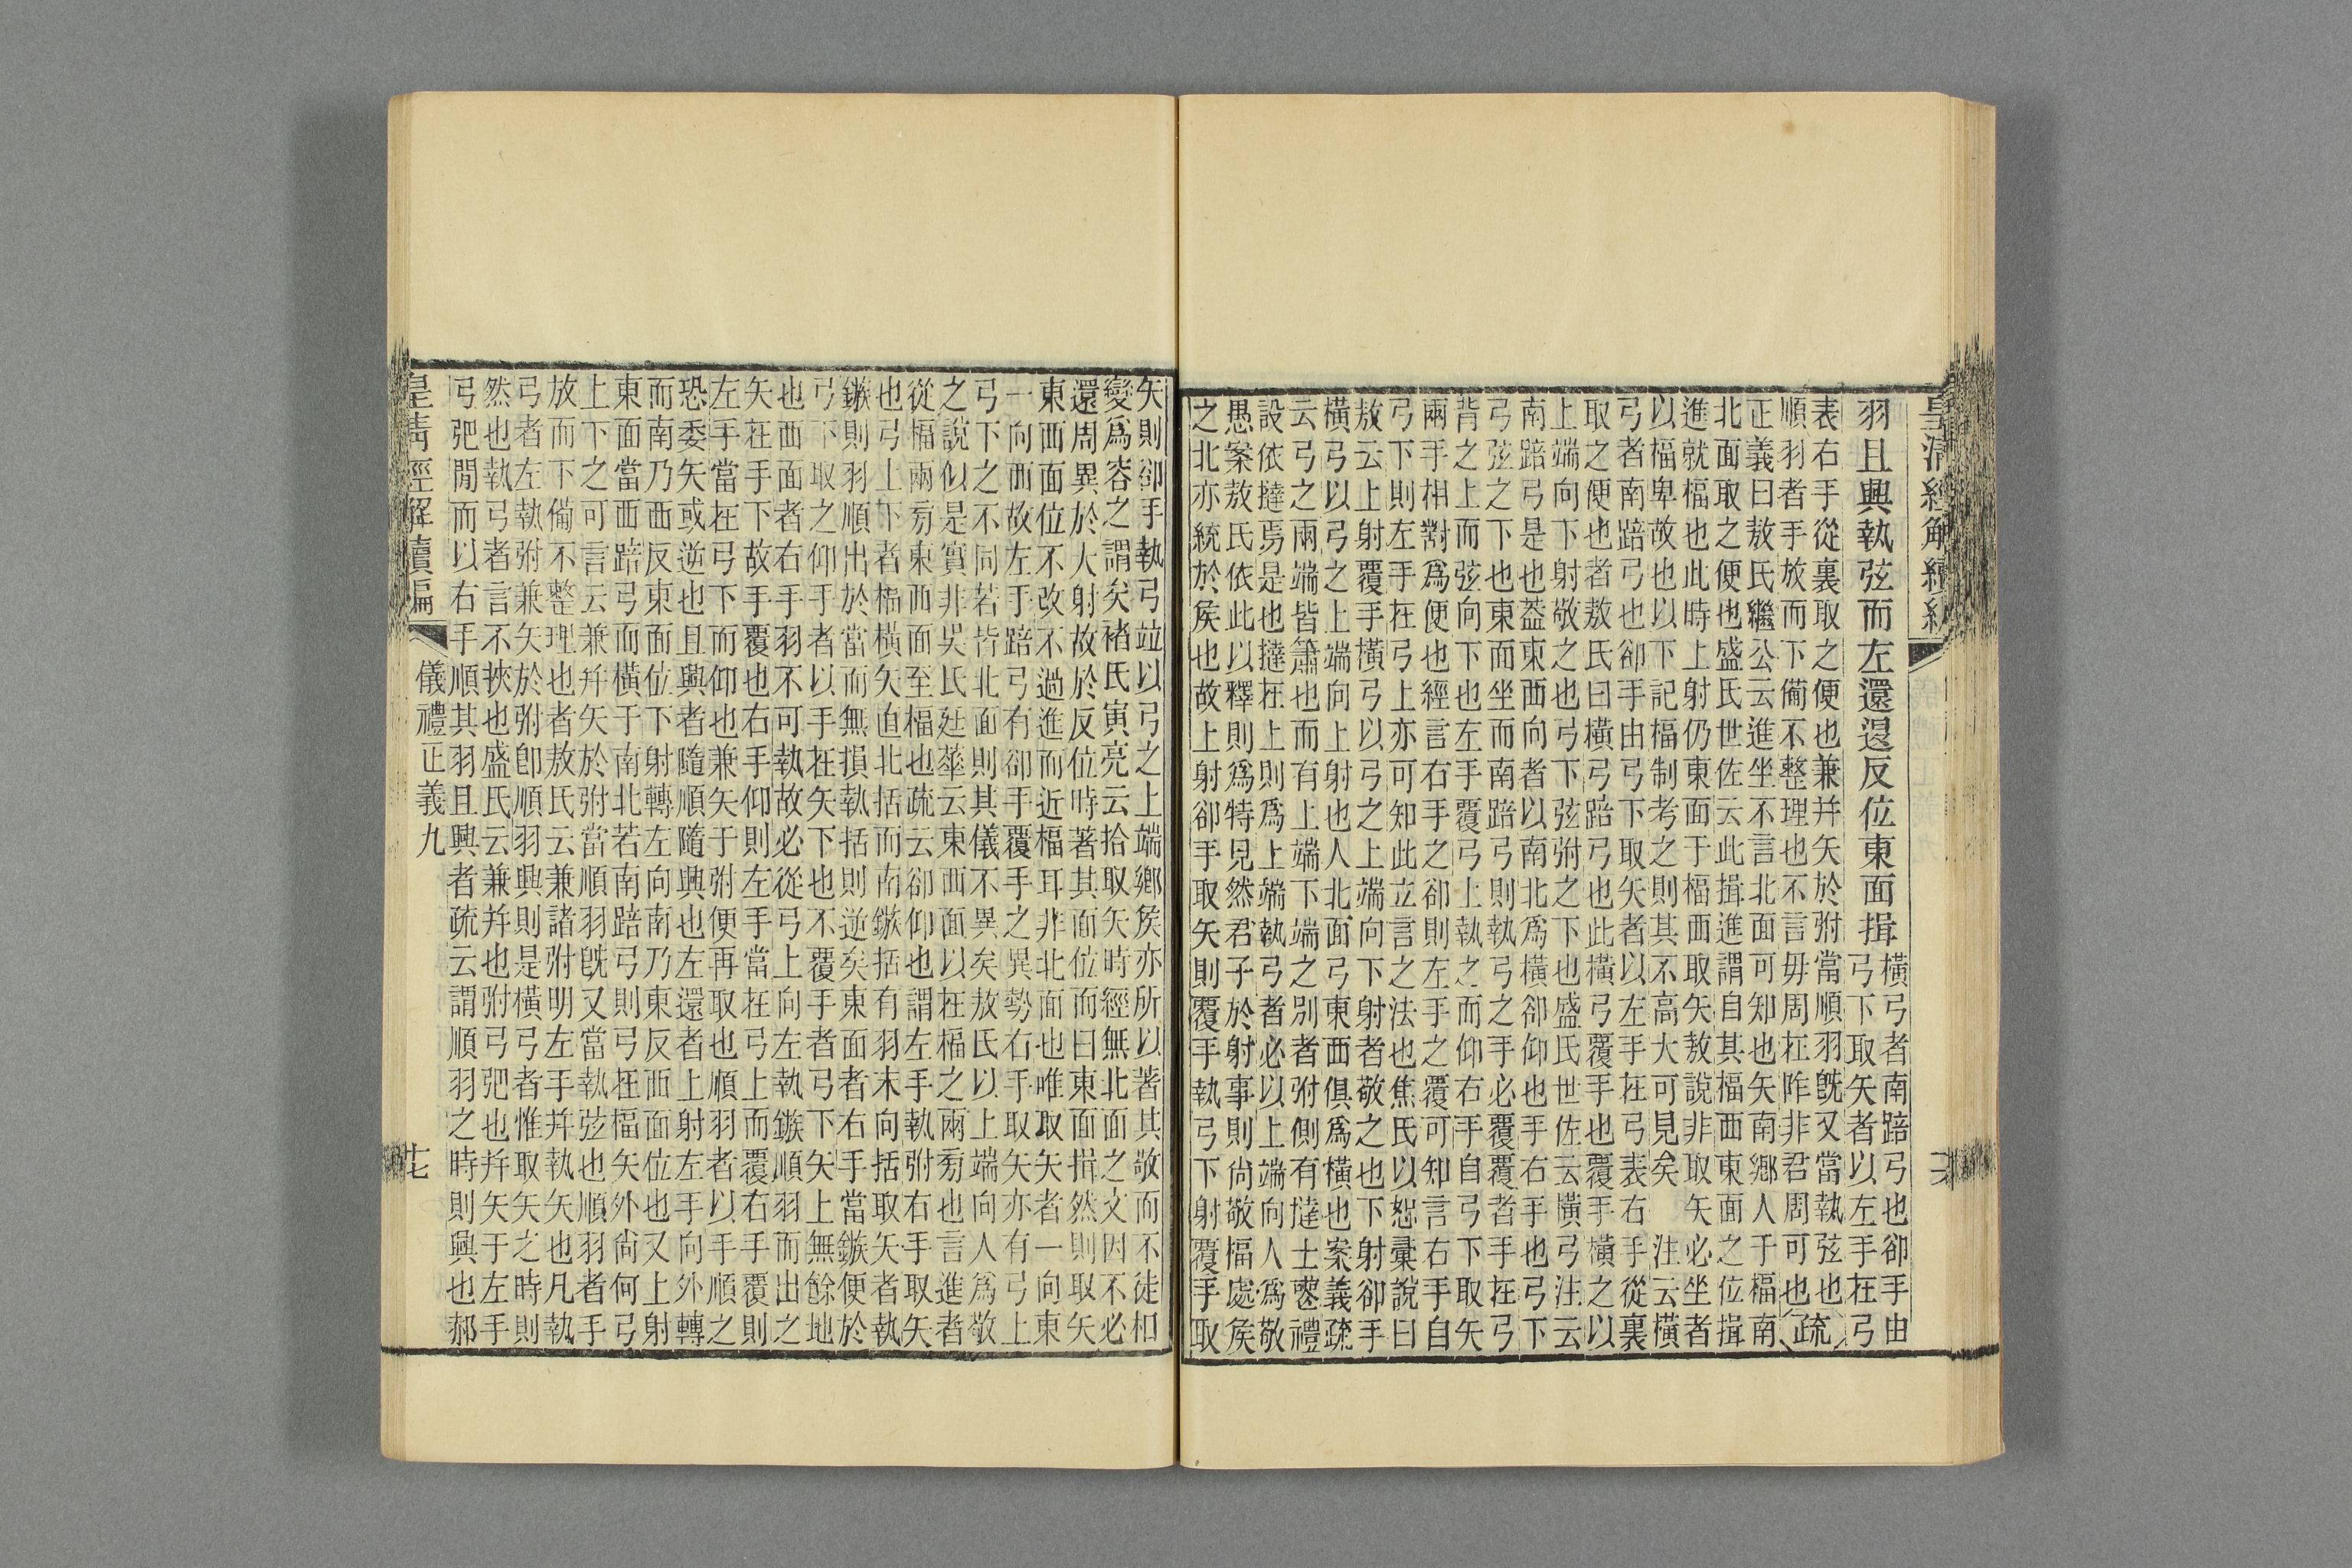 皇清經解續編
羽且興執弦而左還退反位東面揖
橫弓者南踣弓也卻手由
弓下取矢者以左手在弓
表右手從裏取之便也兼并矢於弣當順羽旣又當執弦也
順羽者手放而下備不整理也不言毋周在阼非君周可也疏
正義曰敖氏繼公云進坐不言北面可知也矢南鄉人于楅南
北面取之便也盛氏世佐云此揖進謂自其楅西東面之位揖
進就楅也此時上射仍東面于楅西取矢敖說非取矢必坐者
以楅卑故也以下記楅制考之則其不高大可見矣 注云橫
弓者南踣弓也卻手由弓下取矢者以左手在弓表右手從裏
取之便也者敖氏曰橫弓踣弓也此橫弓覆手也覆手橫之以
上端向下射敬之也弓下弦弣之下也盛氏世佐云橫弓注云
南踣弓是也葢東西向者以南北爲橫卻仰也手右手也弓下
弓弦之下也東面坐而南踣弓則執弓之手必覆覆者手在弓
背之上而弦向下也左手覆弓上執之而仰右手自弓下取矢
兩手相對爲便也經言右手之卻則左手之覆可知言右手自
弓下則左手在弓上亦可知此立言之法也焦氏以恕彙說曰
敖云上射覆手橫弓以弓之上端向下射者敬之也下射卻手
橫弓以弓之上端向上射也人北面弓東西俱爲橫也案義疏
云弓之兩端皆簫也而有上端下端之別者弣側有撻士䙝禮
設依撻焉是也撻在上則爲上端執弓者必以上端向人爲敬
愚案敖氏依此以釋則爲特見然君子於射事則尚敬楅處矦
之北亦統於矦也故上射卻手取矢則覆手執弓下射覆手取
矢則卻手執弓竝以弓之上端鄉矦亦所以著其敬而不徒相
變爲容之謂矣褚氏寅亮云拾取矢時經無北面之文因不必
還周異於大射故於反位時著其面位而曰東面揖然則取矢
東西面位不改不過進而近楅耳非北面也唯取矢者一向東
一向西故左于踣弓有卻手覆手之異勢右手取矢亦有弓上
弓下之不同若皆北面則其儀不異矣敖氏以上端向人爲敬
之說似是實非吳氏廷華云東西面以在楅之兩旁也言進者
從楅兩旁東西面至楅也疏云卻仰也謂左手執弣右手取矢
也弓上下者楅橫矢直北括而南鏃括有羽末向括取矢者執
鏃則羽順出於當而無損執括則逆矣東面者右手當鏃便於
弓下取之仰手者以手在矢下也不覆手者弓下矢上無餘地
也西面者右手羽不可執故必從弓上向左執鏃順羽而出之
矢在手下故手覆也右手仰則左手當在弓上而覆右手覆則
左手當在弓下而仰也兼矢于弣便再取也順羽者以手順之
恐委矢或逆也且興者隨順隨興也左還者上射左手向外轉
而南乃西反東面位下射轉左向南乃東反西面位也又上射
東面當西踣弓而橫于南北若南踣弓則弓在楅矢外尚何弓
上下之可言云兼幷矢於弣當順羽旣又當執弦也順羽者手
放而下備不整理也者敖氏云兼諸弣明左手幷執矢也凡執
弓者左執弣兼矢於弣卽順羽興則是橫弓者惟取矢之時則
然也執弓者言不挾也盛氏云兼幷也弣弓弝也幷矢于左手
弓弝閒而以右手順其羽且興者疏云謂順羽之時則興也郝
皇清經解續編
儀禮正義九
十七